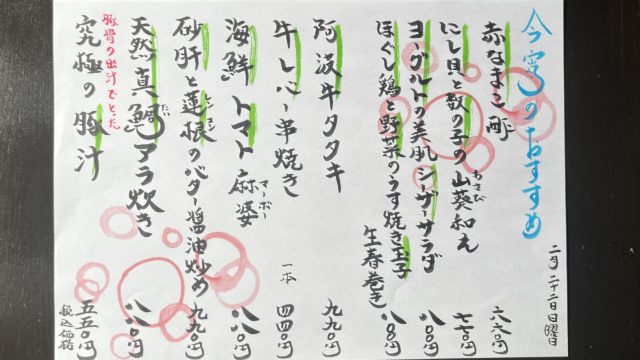 今宵のおすすめ
二月二十二日日曜日
赤なまこ酢 六六〇円
にし貝と数の子の山葵和え 七七〇円
わさび
ヨーグルトの美肌シーザーサラダ 八八〇円
ほぐし鶏と野菜のうす焼き玉子
生春巻き 八八〇円
阿波牛タタキ 九九〇円
牛レバー串焼き 一本 四四〇円
海鮮トマト麻婆 八八〇円
マーボー
砂肝と蓮根のバター醤油炒め 九九〇円
レンコン
天然真鯛アラ炊き 八八〇円
たい
豚骨の出汁でとった
究極の豚汁 五五〇円
税込価格